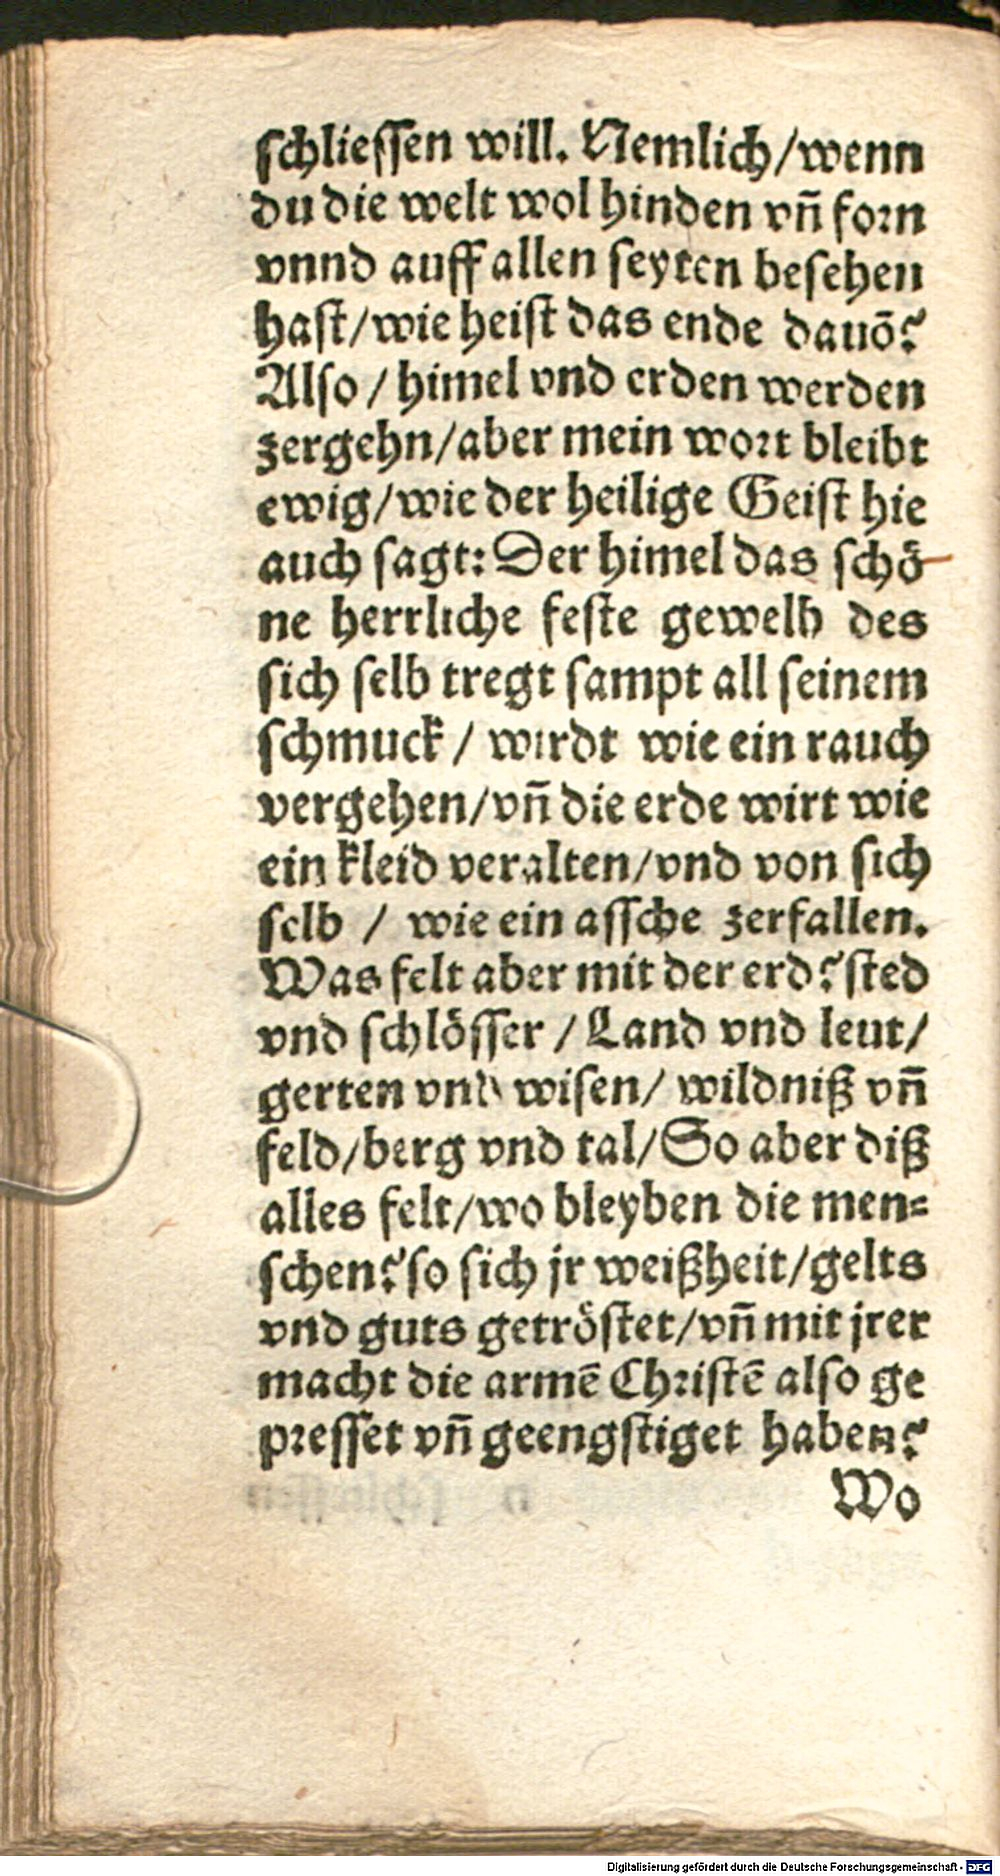 schliessen will. Nemlich/wenn
du die welt wol hinden vn̄ forn
vnnd auff allen seyten besehen
hast/wie heist das ende dauō?
Also / himel vnd erden werden
zergehn/aber mein wort bleibt
ewig/wie der heilige Geist hie
auch sagt: Der himel das schö
ne herrliche feste gewelb des
sich selb tregt sampt all seinem
schmuck / wirdt wie ein rauch
vergehen/vn̄ die erde wirt wie
ein kleid veralten/vnd von sich
selb / wie ein assche zerfallen.
Was felt aber mit der erd? sted
vnd schlösser / Land vnd leut/
gerten vnd wisen/ wildniß vn̄
feld/berg vnd tal/So aber diß
alles felt/wo bleyben die men=
schen? so sich jr weißheit/gelts
vnd guts getröstet/vn̄ mit jrer
macht die armē Christē also ge
presset vn̄ geengstiget haben?
Wo
Digitalisierung gefördert durch die Deutsche Forschungsgemeinschaft - DFG